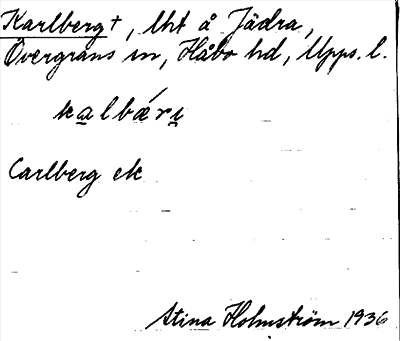 Karlberg+, lht å Jädra,
Övergrans sn, Håbo hd, Upps. l.
kalbǽri
Carlberg ek
Stina Holmström 1936